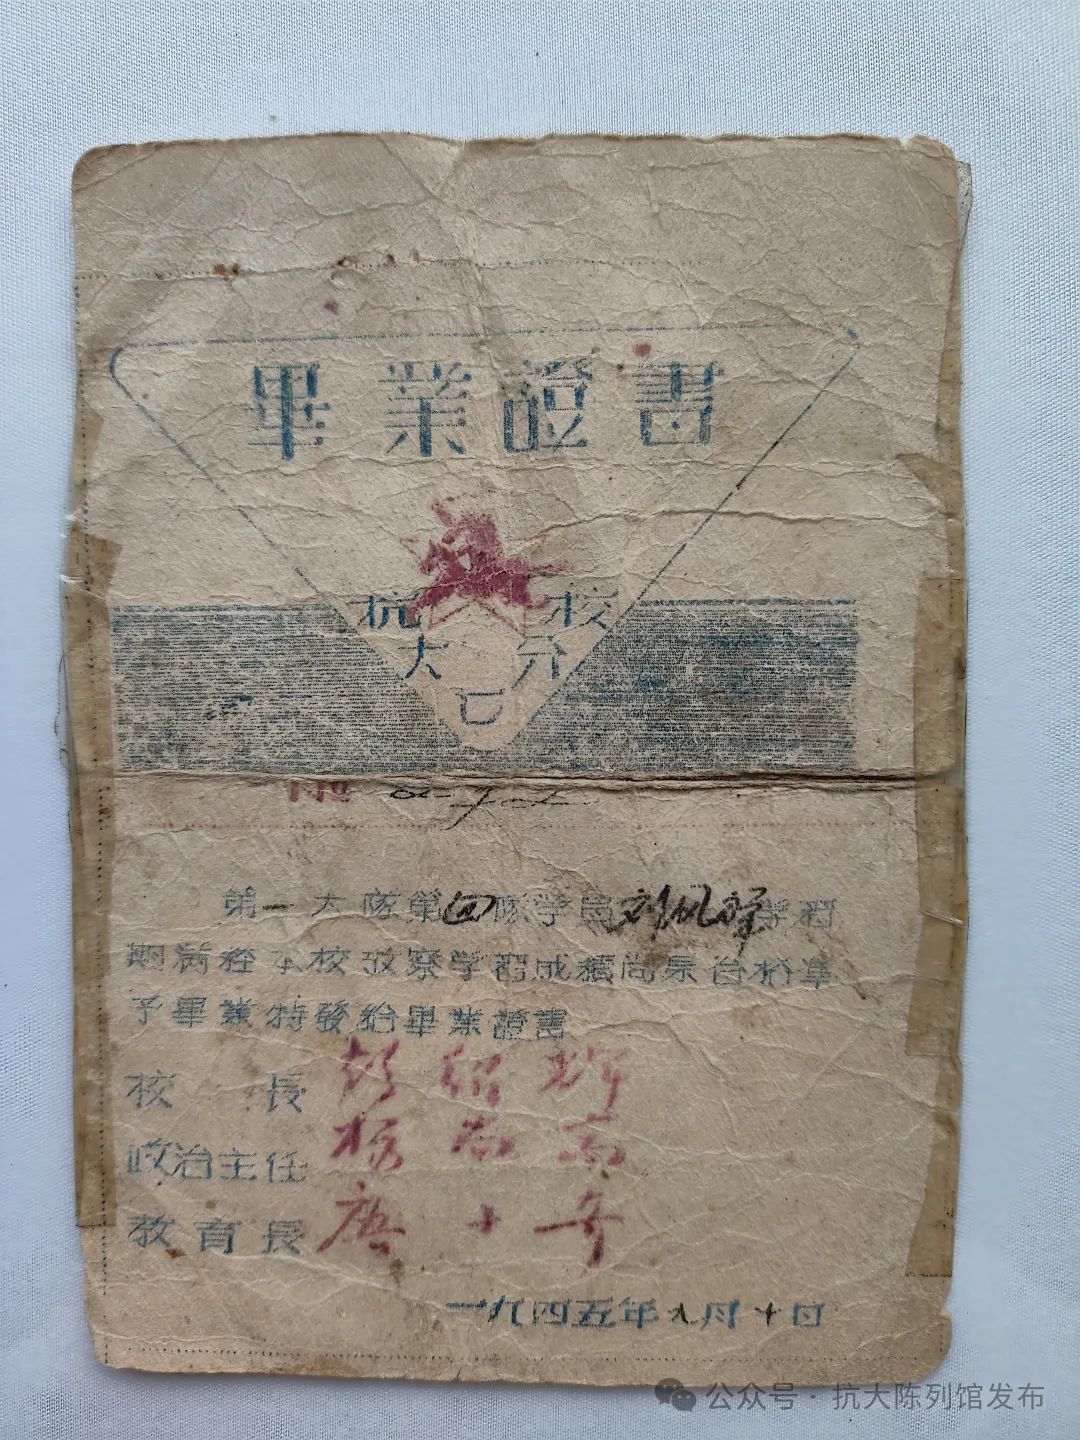 畢業證書
抗大
分校
第一大隊第四隊學員刘凤群學習
期滿經本校攷察學習成績尚屬合格準
予畢業特發給畢業證書
校長 彭绍辉
政治主任 杨尚高
教育長 唐子安
一九四五年九月十日
公众号·抗大陈列馆发布